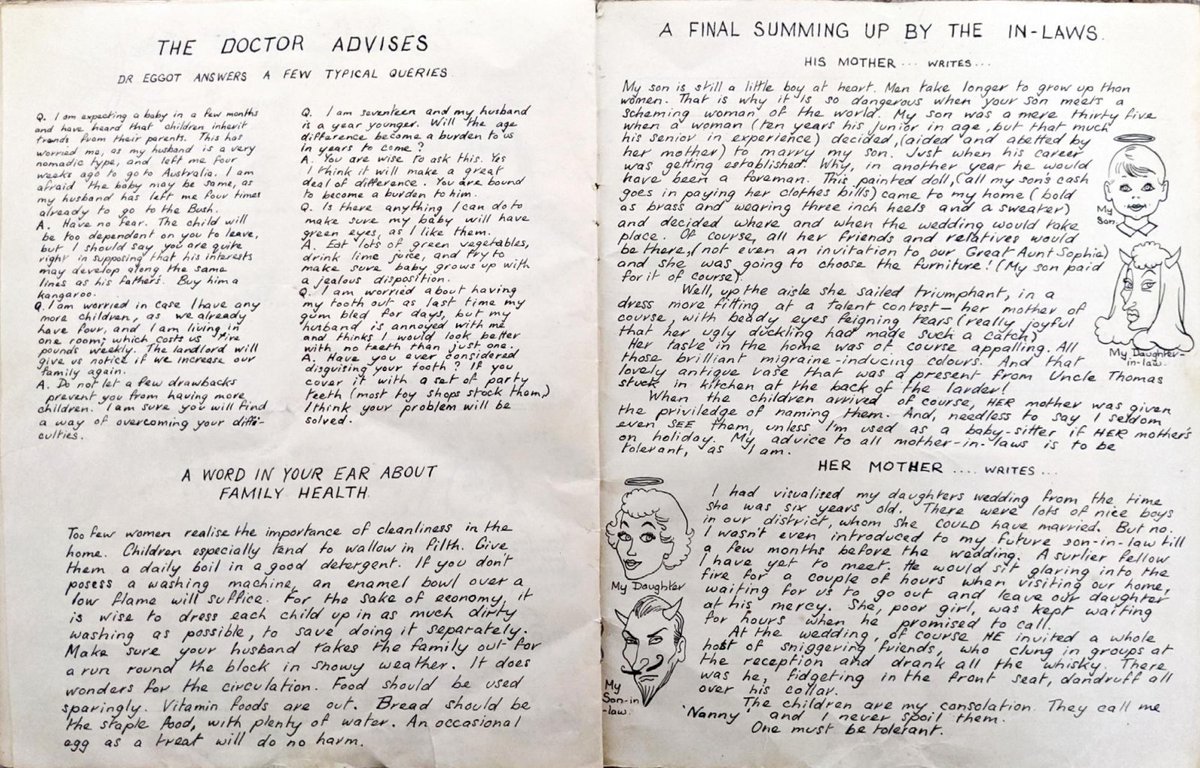 THE DOCTOR ADVISES
DR EGGOT ANSWERS A FEW TYPICAL QUERIES
Q. I am expecting a baby in a few months
and have heard that children inherit
trends from their parents. This has
worried me, as my husband is a very
nomadic type, and left me four
weeks ago to go to Australia. I am
afraid the baby may be same, as
my husband has left me four times
already to go to the Bush.
A. Have no fear. The child will
be too dependent on you to leave,
but I should say you are quite
right in supposing that his interests
may develop along the same
lines as his fathers. Buy him a
kangaroo.
Q. I am worried in case I have any
more children, as we already
have four, and I am living in
one room; which costs us five
pounds weekly. The landlord will
give us notice if we increase our
family again.
A. Do not let a few drawbacks
prevent you from having more
children. I am sure you will find
a way of overcoming your diffi-
culties.
Q. I am seventeen and my husband
is a year younger. Will the age
difference become a burden to us
in years to come?
A. You are wise to ask this. Yes
I think it will make a great
deal of difference. You are bound
to become a burden to him.
Q. Is there anything I can do to
make sure my baby will have
green eyes, as I like them.
A. Eat lots of green vegetables,
drink lime juice, and try to
make sure baby grows up with
a jealous disposition.
Q. I am worried about having
my tooth out as last time my
gum bled for days, but my
husband is annoyed with me
and thinks I would look better
with no teeth than just one.
A. Have you ever considered
disguising your tooth? If you
cover it with a set of party
teeth (most toy shops stock them)
I think your problem will be
solved.
A WORD IN YOUR EAR ABOUT
FAMILY HEALTH
Too few women realise the importance of cleanliness in the
home. Children especially tend to wallow in filth. Give
them a daily boil in a good detergent. If you don't
posess a washing machine, an enamel bowl over a
low flame will suffice. For the sake of economy, it
is wise to dress each child up in as much dirty
washing as possible, to save doing it separately.
Make sure your husband takes the family out for
a run round the block in snowy weather. It does
wonders for the circulation. Food should be used
sparingly. Vitamin foods are out. Bread should be
the staple food, with plenty of water. An occasional
egg as a treat will do no harm.
A FINAL SUMMING UP BY THE IN-LAWS.
HIS MOTHER ... WRITES...
My son is still a little boy at heart. Men take longer to grow up than
women. That is why it is so dangerous when your son meets a
scheming woman of the world. My son was a mere thirty five
when a woman (ten years his junior in age, but that much
his senior in experience) decided, (aided and abetted by
her mother) to marry my son. Just when his career
was getting established. Why, in another year he would
have been a foreman. This painted doll, (all my son's cash
goes in paying her clothes bills) came to my home (bold
as brass and wearing three inch heels and a sweater)
and decided where and when the wedding would take
place. Of course, all her friends and relatives would
be there, (not even an invitation to our Great Aunt Sophia)
and she was going to choose the furniture! (My son paid
for it of course)
Well, up the aisle she sailed triumphant, in a
dress more fitting at a talent contest – her mother of
course, with beady eyes feigning tears (really joyful
that her ugly duckling had made such a catch)
Her taste in the home was of course appalling. All
those brilliant migraine-inducing colours. And that
lovely antique vase that was a present from Uncle Thomas
stuck in kitchen at the back of the larder!
When the children arrived of course, HER mother was given
the priviledge of naming them. And, needless to say I seldom
even SEE them, unless I'm used as a baby-sitter if HER mother's
on holiday. My advice to all mother-in-laws is to be
tolerant, as I am.
My
Son.
My Daughter-
in-law.
HER MOTHER .... WRITES ...
I had visualised my daughters wedding from the time
she was six years old. There were lots of nice boys
in our district, whom she COULD have married. But no.
I wasn't even introduced to my future son-in-law till
a few months before the wedding. A surlier fellow
I have yet to meet. He would sit glaring into the
fire for a couple of hours when visiting our home,
waiting for us to go out and leave our daughter
at his mercy. She, poor girl, was kept waiting
for hours when he promised to call.
At the wedding, of course, HE invited a whole
host of sniggering friends, who clung in groups at
the reception and drank all the whisky. There
was he, fidgeting in the front seat, dandruff all
over his collar.
The children are my consolation. They call me
'Nanny', and I never spoil them.
One must be tolerant.
My Daughter
My
Son-in
-law.